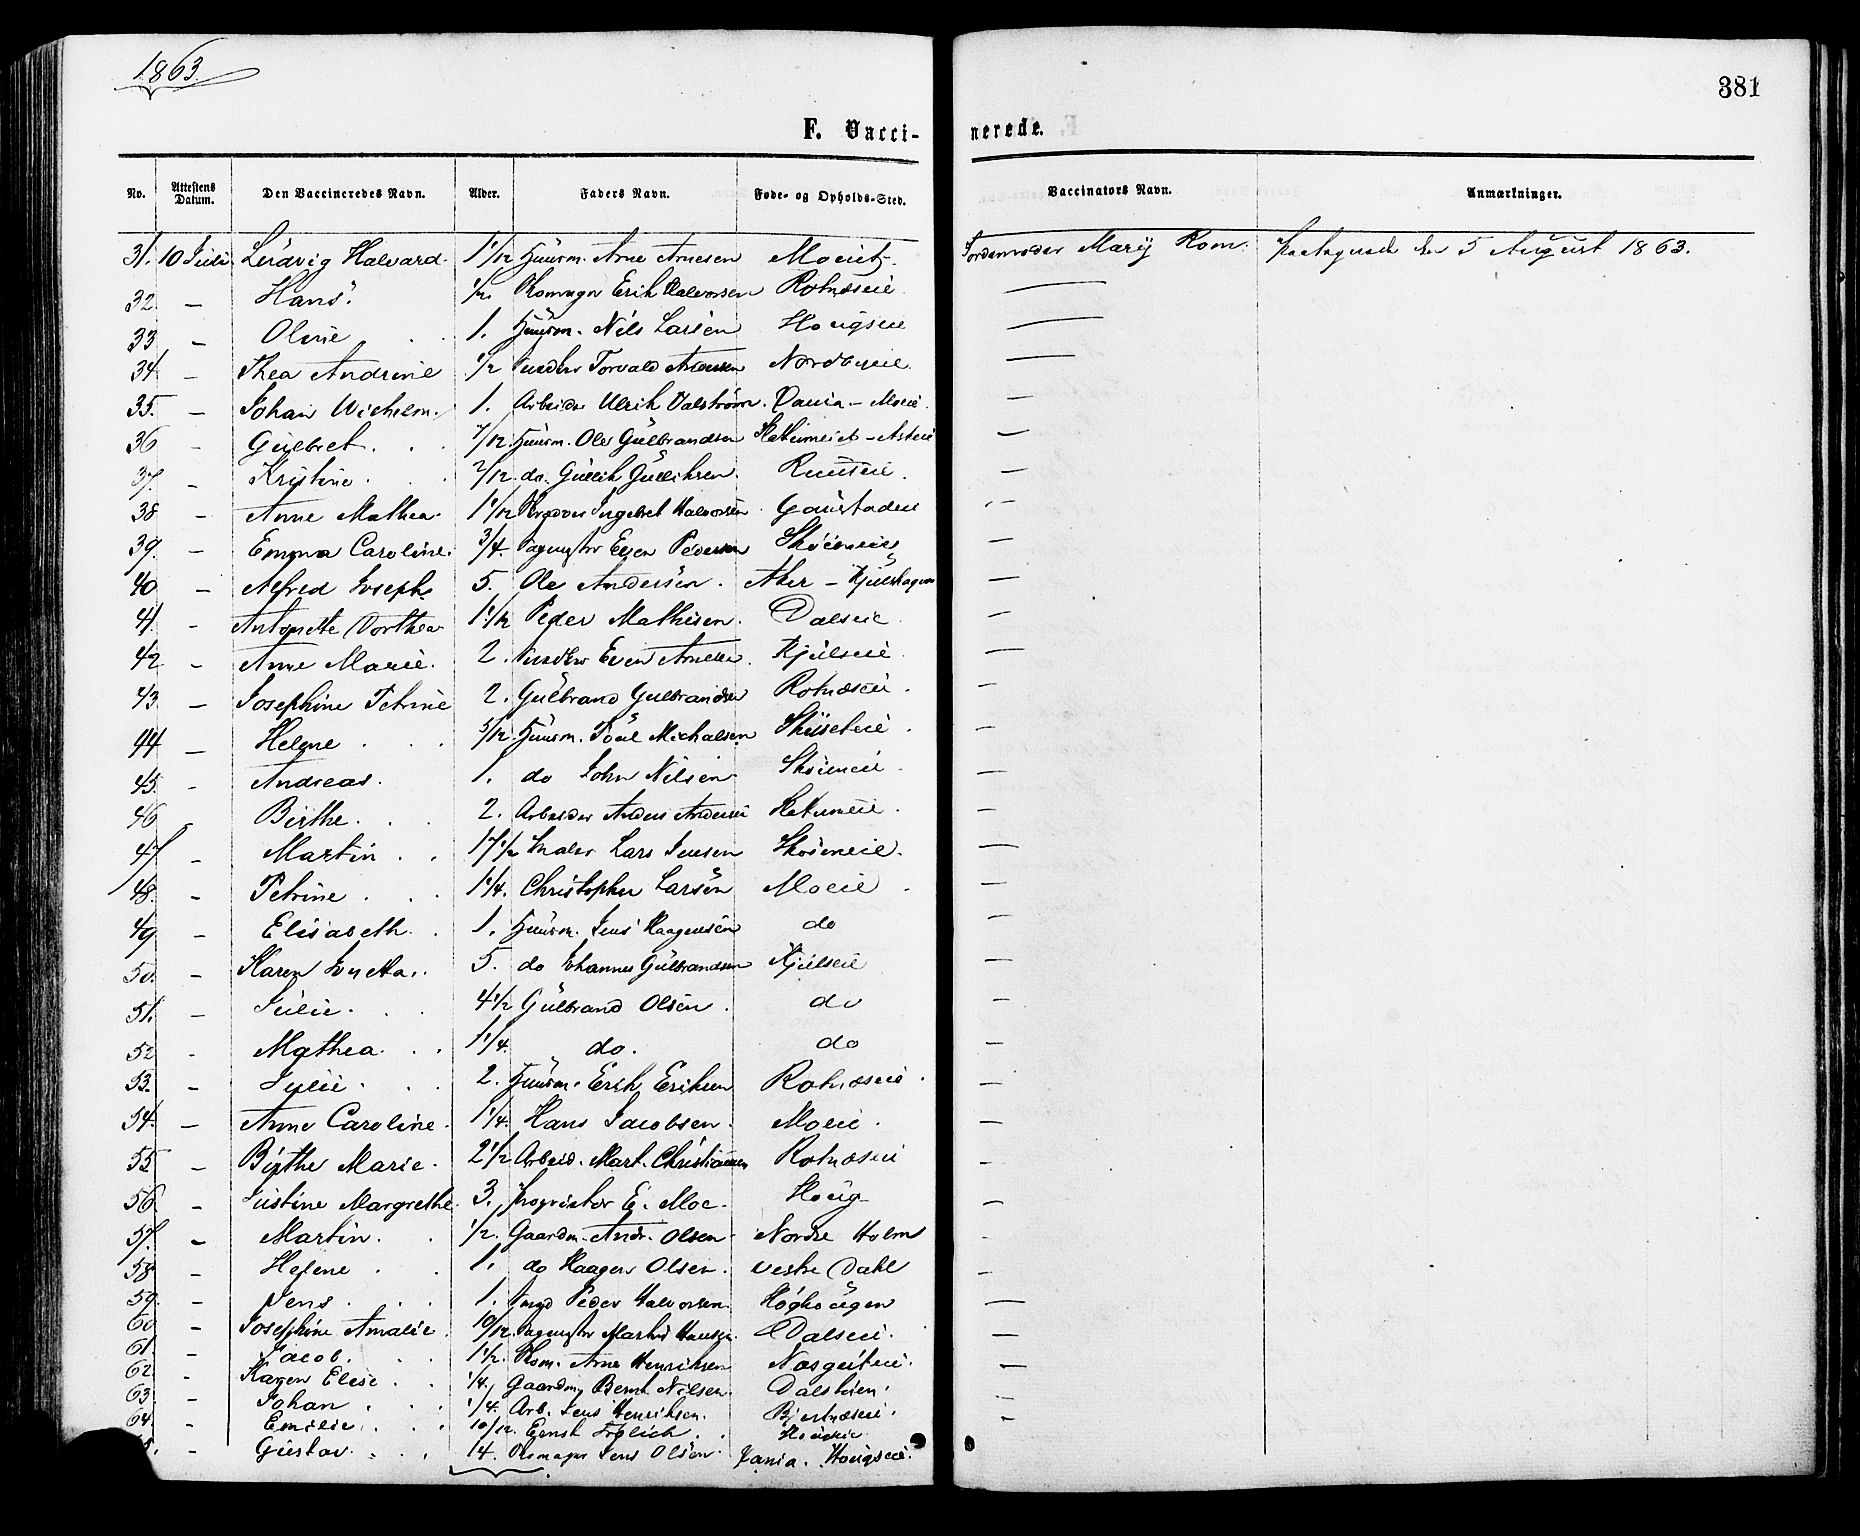 1863.
381
F. Vaccinerede.
No. Attestens Datum. Den Vaccineredes Navn. Alder. Faders Navn. Føde- og Opholds-Sted. Vaccinators Navn. Anmærkninger.
31. 10 Juli Ludvig Halvard. 1 1/12 Huusm. Arne Arnesen Moeiet. Jordemoder Mary Rom. den 5 August 1863.
32 — Hans. 1/2. Erik Halvorsen Rotnæseie —
33 — Oline 1. Huusm. Nils Larsen Hougseie —
34 — Thea Andrine 1/2 Torvald Andersen Nordbyeie —
35. — Johan Wilhelm. 1. Arbeider Ulrik Dalstrøm. Dania - Moeie —
36 — Gulbret. 7/12. Huusm. Ole Gulbrandsen —
37. — Kristine 2/12 do. Gullik Gulliksen. Ruuseie —
38 — Anne Mathea. 1 1/12 Ingebret Halvorsen Goustadeie —
39. — Emma Caroline. 3/4. Even Pedersen Skøieneie —
40 — Alfred Joseph. 5. Ole Andersen. Aker - Kjulshagen —
41. — Antonette Dorthea 1 1/2 Peder Mathisen. Dalseie —
42 — Anne Marie. 2. Even Arnesen. Kjulseie —
43. — Josephine Petrine 2. Gulbrand Gulbrandsen Rotnæseie. —
44 — Helene 5/12. Huusm. Poul Michalsen —
45. — Andreas. 1. do John Nilsen Skøieneie —
46 — Birthe. 2. Arbeider Anders Andersen —
47 — Martin 17 1/2 Maler Lars Jensen Skøieneie. —
48. — Petrine 1 1/4. Christopher Larsen Moeie —
49 — Elisabeth. 1. Huusm. Jens Haagensen do —
50. — Karen 5. do Johannes Gulbrandsen Kjulseie —
51. — Julie. 4 1/2 Gulbrand Olsen. do —
52 — Mathea. 1 1/4. do. do —
53. — Julie 2. Huusm. Erik Eriksen Rotnæseie. —
54. — Anne Caroline. 1 1/4. Hans Jacobsen. Moeie. —
55 — Birthe Marie. 2 1/2 Arbeid. Mart. Christiansen Rotnæseie —
56. — Justine Margrethe. 3. Proprietær E. Moe. Houg —
57. — Martin. 1/2. Gaardm. Andr. Olsen Nordre Holm —
58 — Helene 1. do Haagen Olsen. vestre Dahl —
59. — Jens 1. Peder Halvorsen. Høghougen —
60 — Josephine Amalie. 10/12. Markus Hansen. Dalseie. —
61. — Jacob. 1 1/2. Arne Henriksen —
62. — Karen Elise 1/4. Gaardm. Bernt Nilsen. —
63. — Johan 1/4. Arb. Jens Henriksen. —
64. Emilie. 10/12. Ernst Frølich —
Gustav. 14. Jens Olsen. Dania. Hougseie.